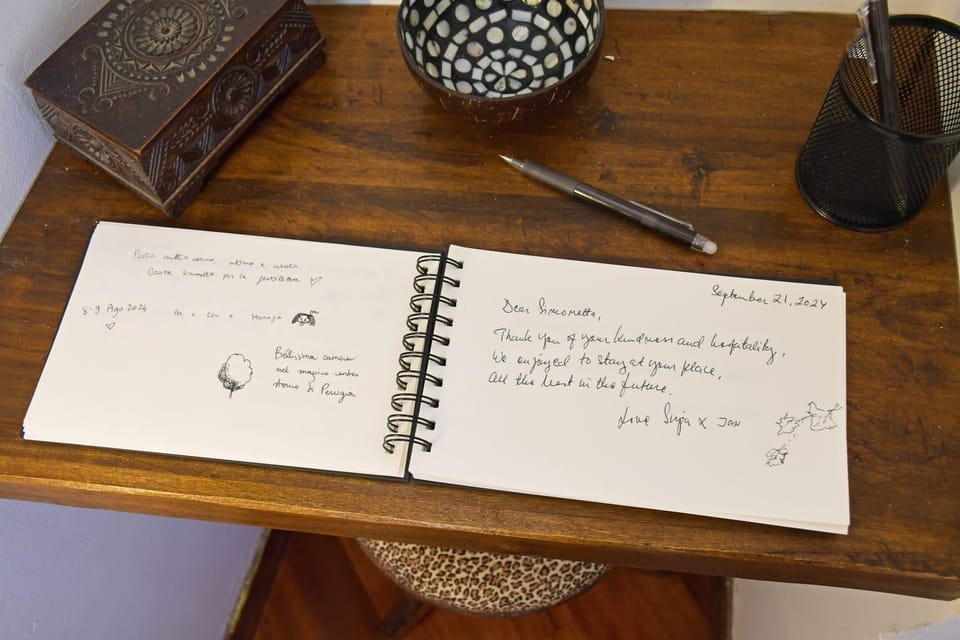 Posto molto carino, intimo e curato.
Grazie Simonetta per la gentilezza
8-9. Ago 2024
Bellissima camera
nel magico centro
storico di Perugia
September 21, 2024
Dear Simonetta,
Thank you of your kindness and hospitality,
We enjoyed to stay at your place,
All the best in the future.
Love x Jan